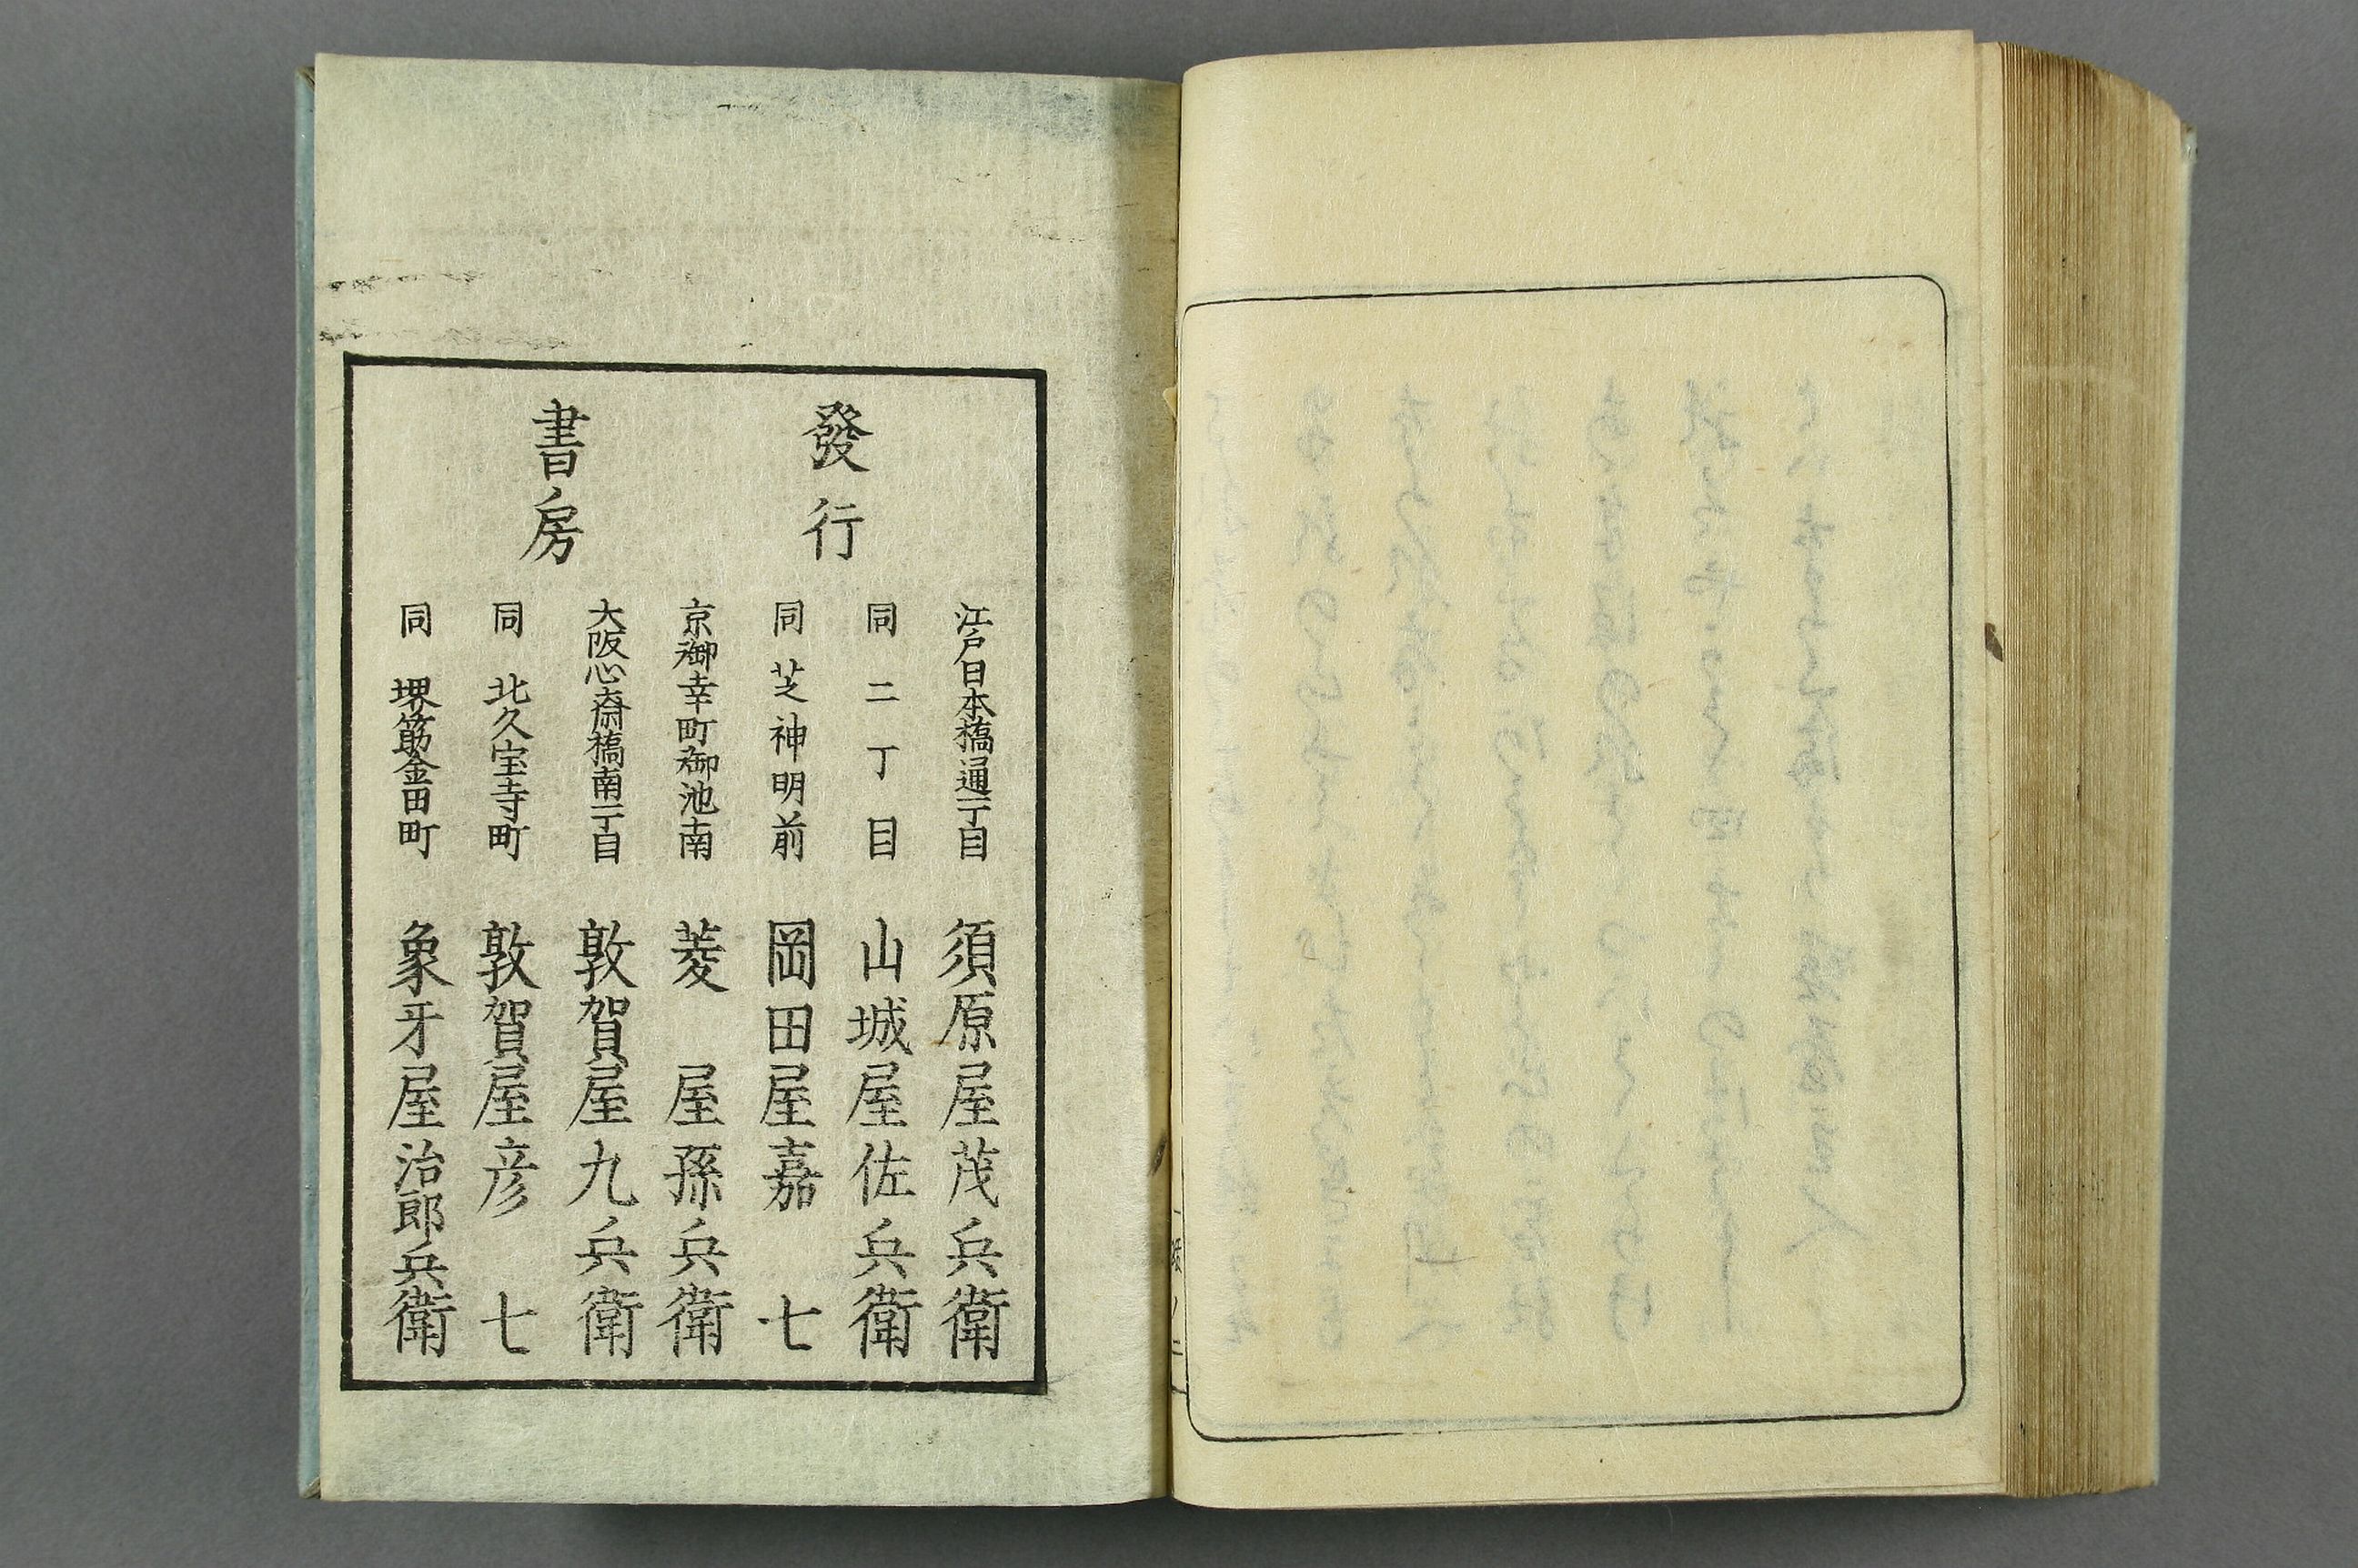 發行
書房
江戸日本橋通一丁目 須原屋茂兵衛
同 二丁目 山城屋佐兵衛
同 芝神明前 岡田屋嘉七
京御幸町御池南 菱屋孫兵衛
大阪心齋橋南一丁目 敦賀屋九兵衛
同 北久宝寺町 敦賀屋彦七
同 堺筋金田町 象牙屋治郎兵衛